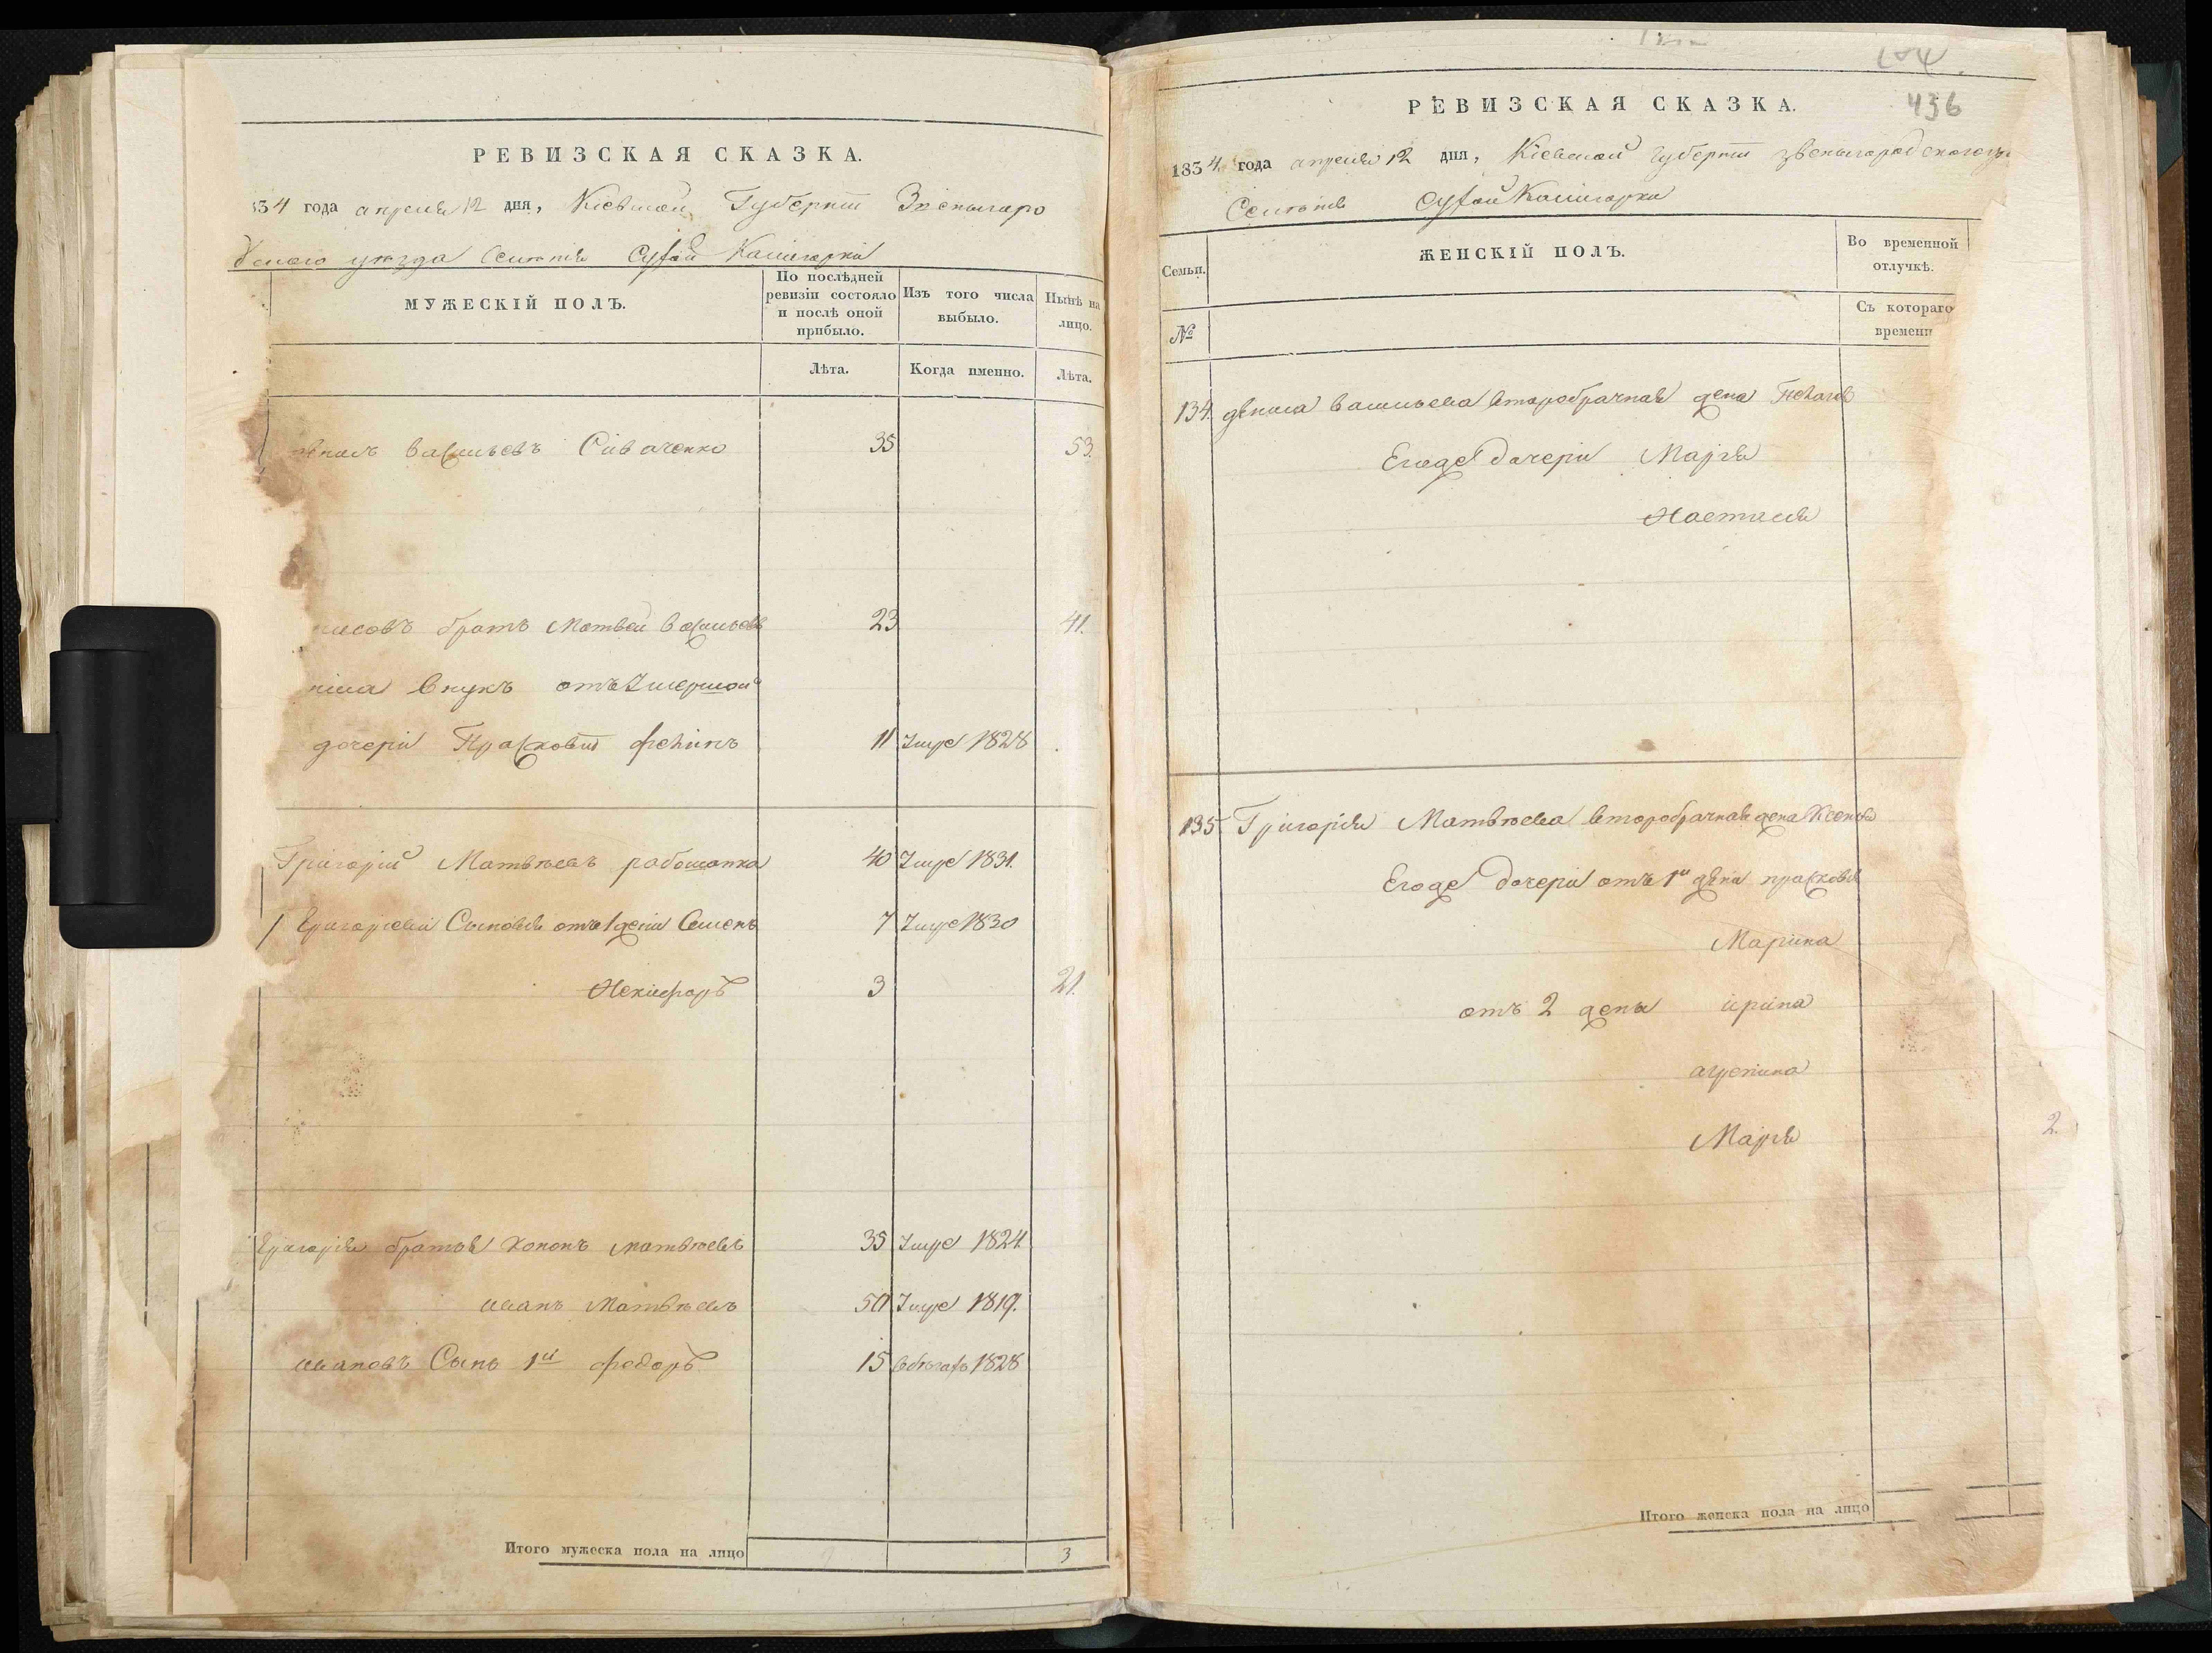 РЕВИЗСКАЯ СКАЗКА.
34 года апреля 12 дня, Кіевской Губерніи Звенигоро
дского уезда Селенія Сухой Калигорки
МУЖЕСКІЙ ПОЛЪ.
По послѣдней ревизіи состояло и послѣ оной прибыло.
Изъ того числа выбыло.
Нынѣ на лицо.
Лѣта.
Когда именно.
Лѣта.
васильевъ Сиваченко 35 53.
нисовъ братъ Матвей васильевъ 23 41.
ниса внукъ отъ Умершой
дочери Прасковіи 11 Умре 1828
Григорій Матвѣевъ 40 Умре 1831.
Григорьевы Сыновья отъ 1 жени Семенъ 7 Умре 1830
Некифоръ 3 21.
Григорія братья Кононъ матвѣевъ 35 Умре 1824.
иванъ Матвѣевъ 50 Умре 1819.
ивановъ Сынъ 1й федоръ 15 1828
Итого мужеска пола на лицо 3
104.
РЕВИЗСКАЯ СКАЗКА.
436
1834. года апреля 12 дня, Кіевской Губерніи звенигородского
Селенія Сухой Калигорки
Семьи.
ЖЕНСКІЙ ПОЛЪ.
Во временной отлучкѣ.
№
Съ котораго времени
134. дениса васильева второбрачная жена
Егоже дочери Марія
Настасия
135 Григорія Матвѣева второбрачная жена Ксенія
Егоже дочери отъ 1й жени прасковія
Марина
отъ 2 жены ирина
Марія
2.
Итого женска пола на лицо